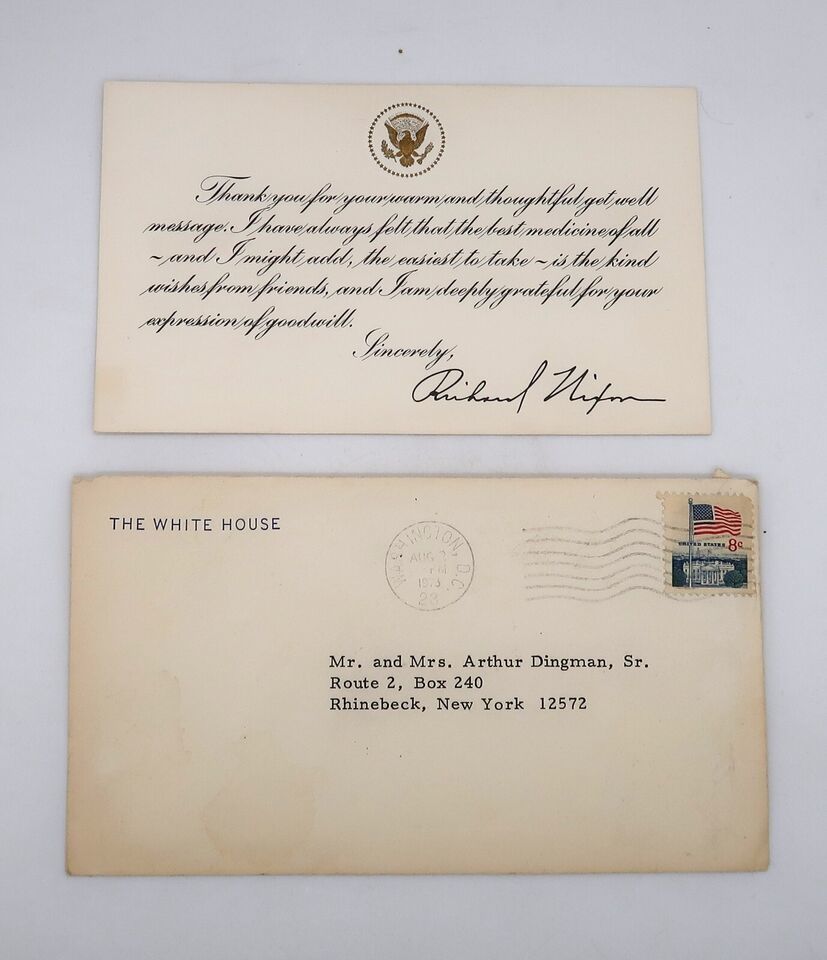 Thank you for your warm and thoughtful get well
message. I have always felt that the best medicine of all
~ and I might add, the easiest to take ~ is the kind
wishes from friends, and I am deeply grateful for your
expression of goodwill.
Sincerely,
Richard Nixon
THE WHITE HOUSE
WASHINGTON, D.C.
AUG 2
PM
1973
23
UNITED STATES 8c
Mr. and Mrs. Arthur Dingman, Sr.
Route 2, Box 240
Rhinebeck, New York 12572